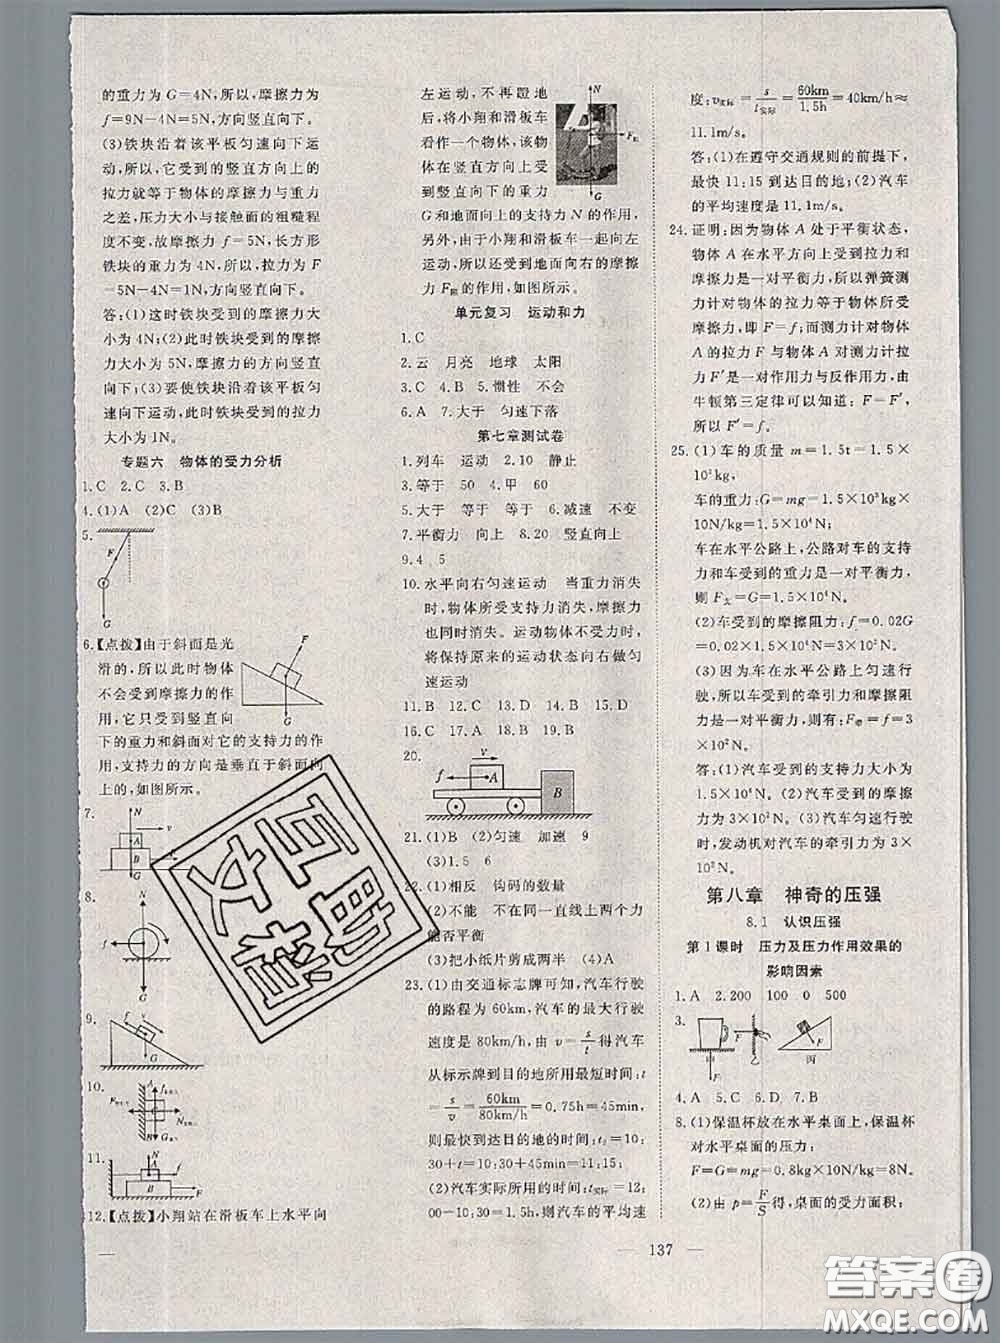 的重力为G=4N,所以,摩擦力为
f=9N-4N=5N,方向竖直向下。
(3)铁块沿着该平板匀速向下运
动,所以,它受到的竖直向上的
拉力就等于物体的摩擦力与重力
之差,压力大小与接触面的粗糙程
度不变,故摩擦力f=5N,长方形
铁块的重力为4N,所以,拉力为F
=5N-4N=1N,方向竖直向下。
答:(1)这时铁块受到的摩擦力大
小为4N;(2)此时铁块受到的摩擦
力大小为5N,摩擦力的方向竖直
向下;(3)要使铁块沿着该平板匀
速向下运动,此时铁块受到的拉力
大小为1N。
专题六 物体的受力分析
1.C 2.C 3.B
4.(1)A (2)C (3)B
5.
F
G
6.【点拨】由于斜面是光
滑的,所以此时物体
不会受到摩擦力的作
用,它只受到竖直向
下的重力和斜面对它的支持力的作
用,支持力的方向是垂直于斜面向
上的,如图所示。
F
G
7.
N
v
A
B
G
8.
f
G
9.
f
G
10.
A
B
11.
N
f
A
B
F
12.【点拨】小翔站在滑板车上水平向
左运动,不再蹬地
后,将小翔和滑板车
看作一个物体,该物
体在竖直方向上受
到竖直向下的重力
G和地面向上的支持力N的作用,
另外,由于小翔和滑板车一起向左
运动,所以还受到地面向右的摩擦
力F阻的作用,如图所示。
N
F阻
G
单元复习 运动和力
1.C
2.云 月亮 地球 太阳
3.C 4.B 5.惯性 不会
6.A 7.大于 匀速下落
第七章测试卷
1.列车 运动 2.10 静止
3.等于 50 4.甲 60
5.大于 等于 等于 6.减速 不变
7.平衡力 向上 8.20 竖直向上
9.4 5
10.水平向右匀速运动 当重力消失
时,物体所受支持力消失,摩擦力
也同时消失。运动物体不受力时,
将保持原来的运动状态向右做匀
速运动
11.B 12.C 13.D 14.D 15.D
16.C 17.A 18.B 19.B
20.
v
f
A
B
21.(1)B (2)匀速 加速 9
(3)1.5 6
22.(1)相反 钩码的数量
(2)不能 不在同一直线上的两个力
能否平衡
(3)把小纸片剪成两半 (4)A
23.(1)由交通标志牌可知,汽车行驶
的路程为60km,汽车的最大行驶
速度是80km/h,由v=s/t得汽车
从标示牌到目的地所用最短时间:t
=s/v=60km/80km/h=0.75h=45min,
则最快到达目的地的时间:t₂=10:
30+t=10:30+45min=11:15;
(2)汽车实际所用的时间:t实际=12:
00-10:30=1.5h,则汽车的平均速
度:v实际=s/t实际=60km/1.5h=40km/h≈
11.1m/s。
答:(1)在遵守交通规则的前提下,
最快11:15到达目的地;(2)汽车
的平均速度是11.1m/s。
24.证明:因为物体A处于平衡状态,
物体A在水平方向上受到拉力和
摩擦力是一对平衡力,所以弹簧测
力计对物体的拉力等于物体所受
摩擦力,即F=f;而测力计对物体
A的拉力F与物体A对测力计拉
力F′是一对作用力与反作用力,由
牛顿第三定律可以知道:F=F′,
所以F′=f。
25.(1)车的质量m=1.5t=1.5×
10³kg,
车的重力:G=mg=1.5×10³kg×
10N/kg=1.5×10⁴N,
车在水平公路上,公路对车的支持
力和车受到的重力是一对平衡力,
则F支=G=1.5×10⁴N;
(2)车受到的摩擦阻力:f=0.02G
=0.02×1.5×10⁴N=3×10²N;
(3)因为车在水平公路上匀速行
驶,所以车受到的牵引力和摩擦阻
力是一对平衡力,则有:F牵=f=3
×10²N。
答:(1)汽车受到的支持力大小为
1.5×10⁴N;(2)汽车受到的摩擦
力为3×10²N;(3)汽车匀速行驶
时,发动机对汽车的牵引力为3×
10²N。
第八章 神奇的压强
8.1 认识压强
第1课时 压力及压力作用效果的
影响因素
1.A 2.200 100 0 500
3.
甲
F
F
F
丙
4.A 5.C 6.D 7.B
8.(1)保温杯放在水平桌面上,保温杯
对水平桌面的压力:
F=G=mg=0.8kg×10N/kg=8N。
(2)由p=F/S得,桌面的受力面积:
137
互助文档
答案圈
MXQE.COM